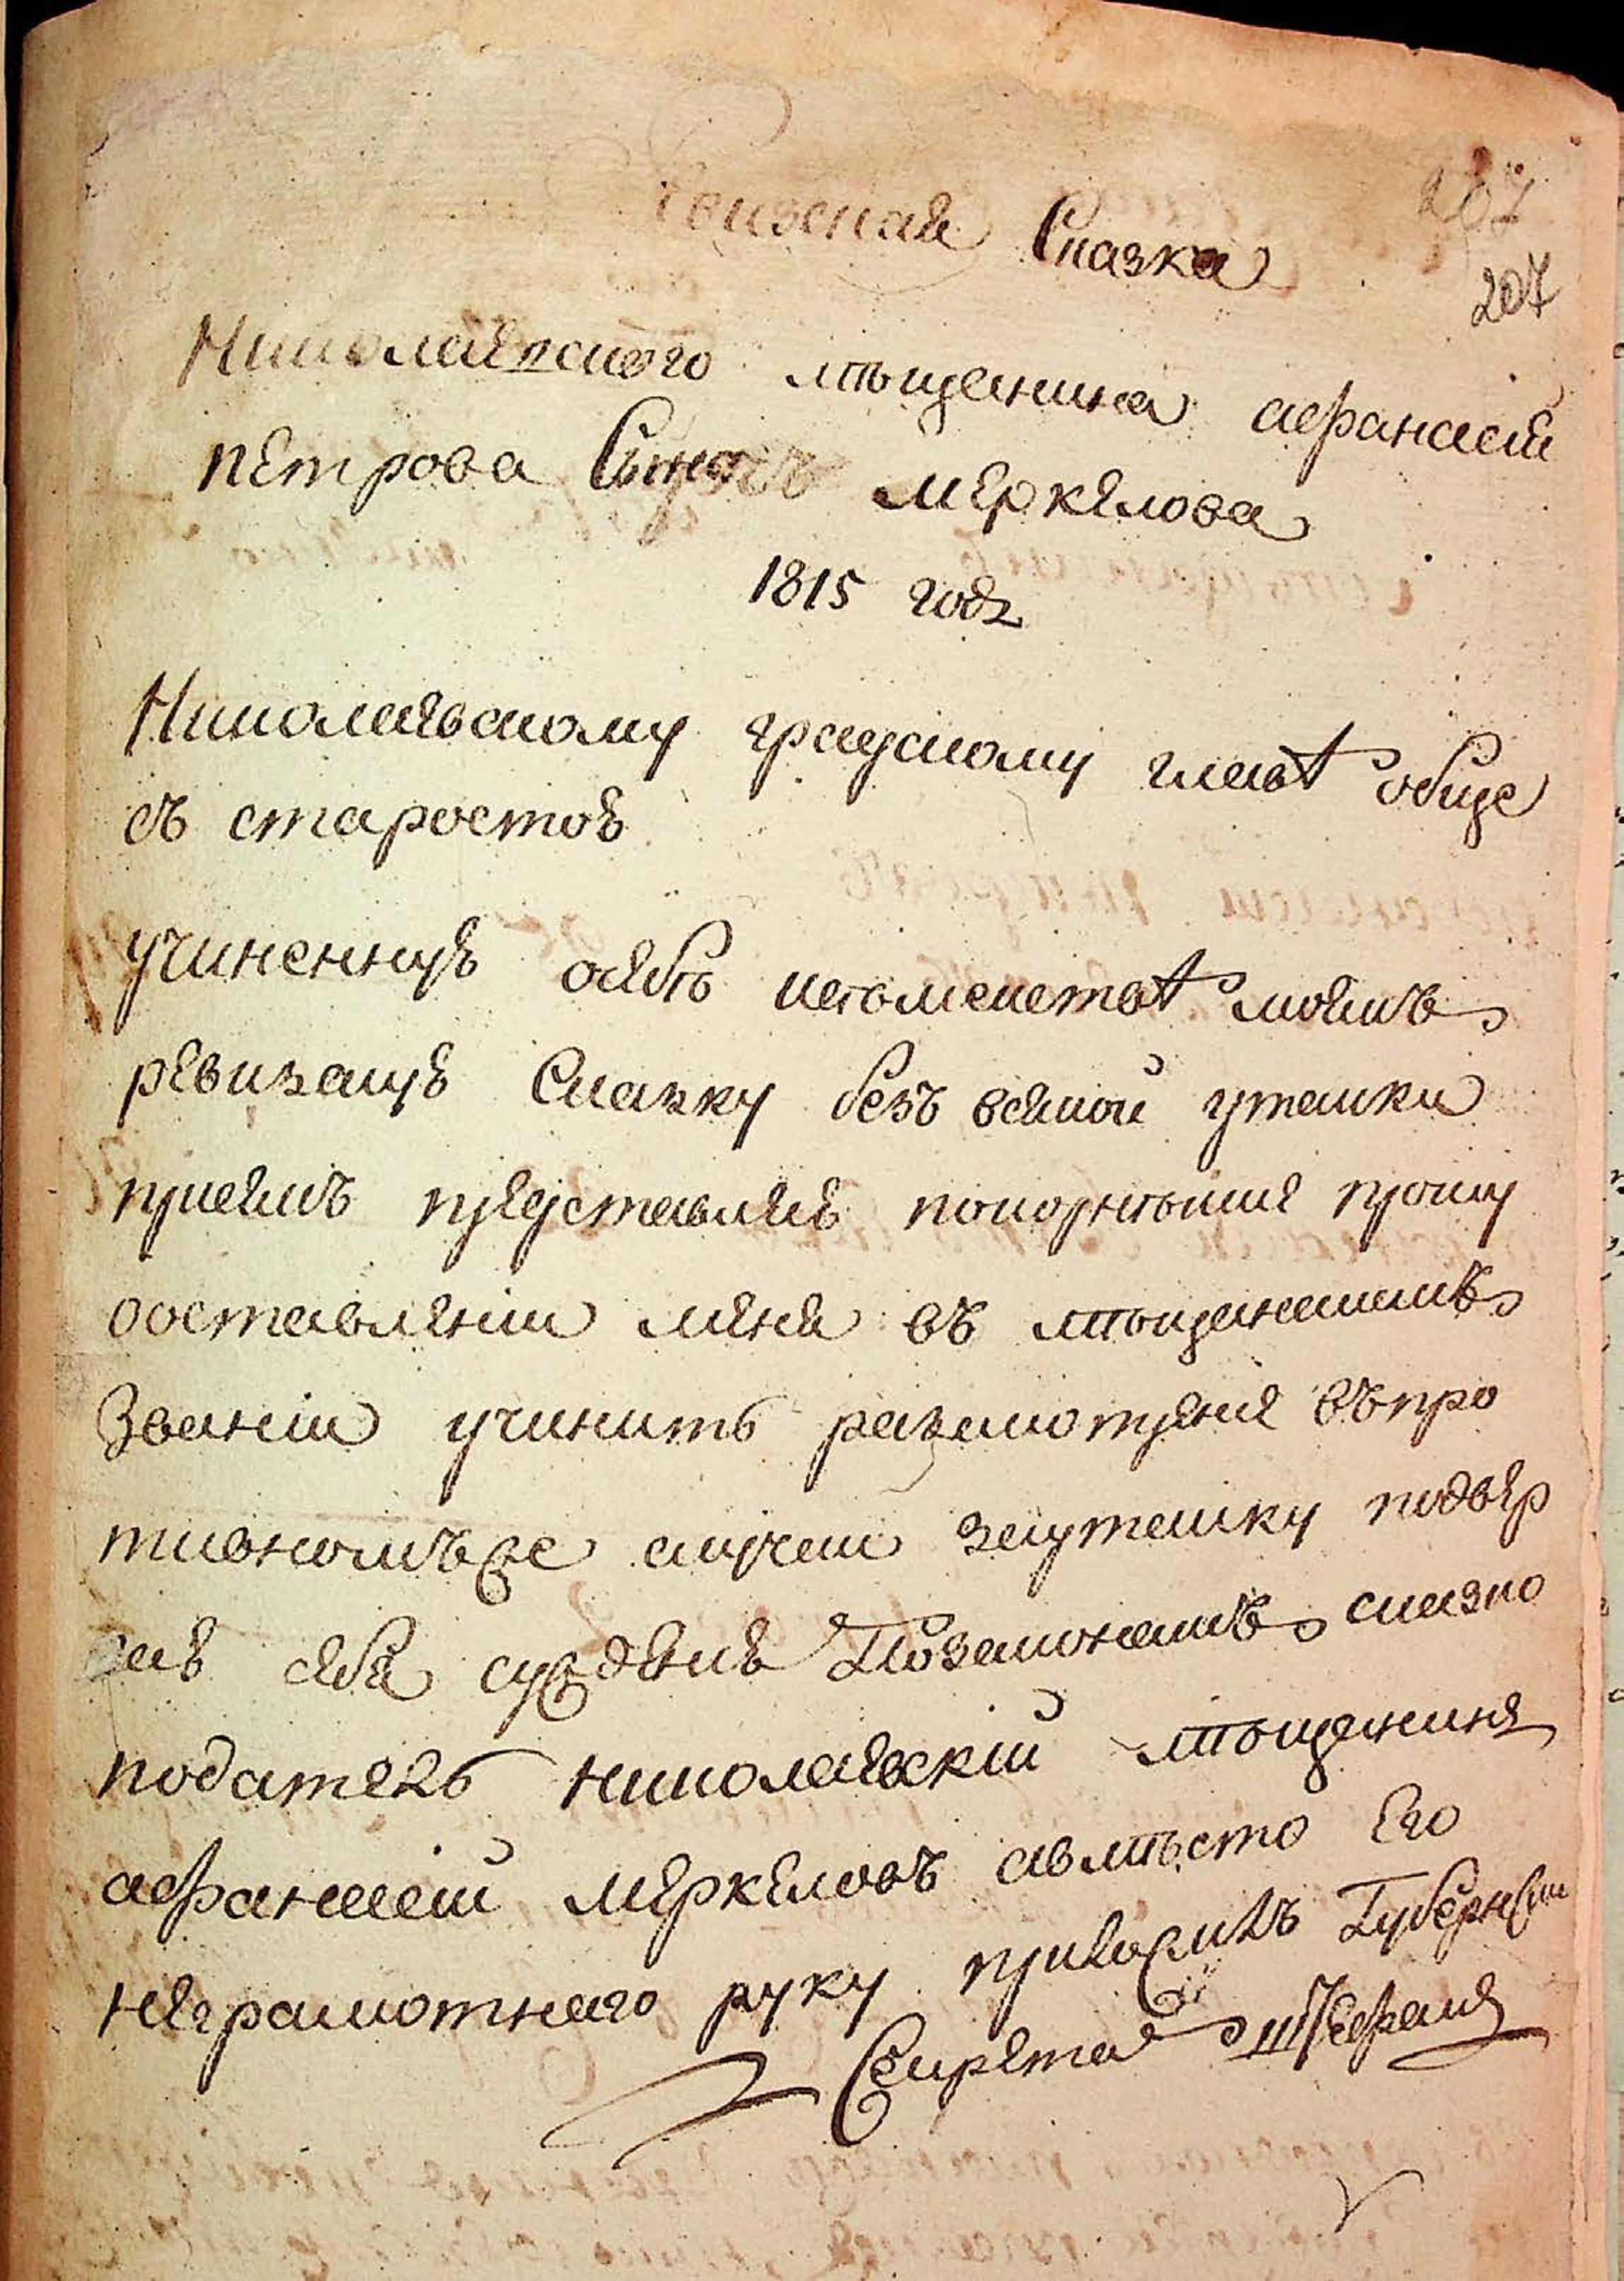 207
Ревизская Сказка
207
Николаевского мѣщенина афанасия
петрова Сына меркелова
1815 годъ
Николаевскому градскому главѣ обще
съ старостою
учиненную осебѣ исемействѣ моемъ
ревизскую Сказку безъ всякой утайки
присемъ представляя покорнейше прошу
ооставлении меня въ мѣщанскомъ
Звании учинить разсмотрение въпро
тивномъже случаи заутайку подвер
гаю себя суждению Позаконамъ сказко
податель николаевский мѣщенинъ
афанасей меркеловъ авмѣсто Его
неграмотнаго руку приложилъ Губернски
Секретарь